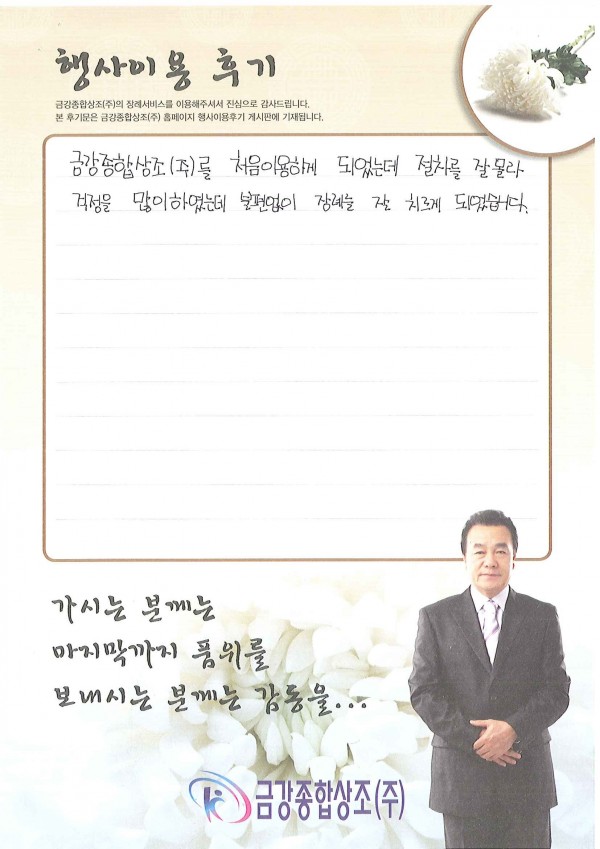 행사이용 후기
금강종합상조(주)의 장례서비스를 이용해주셔서 진심으로 감사드립니다.
본 후기문은 금강종합상조(주) 홈페이지 행사이용후기 게시판에 기재됩니다.
금강종합상조(주)를 처음이용하게 되었는데 절차를 잘몰라
걱정을 많이하였는데 불편없이 장례를 잘 치르게 되었습니다.
가시는 분께는
마지막까지 품위를
보내시는 분께는 감동을...
금강종합상조(주)